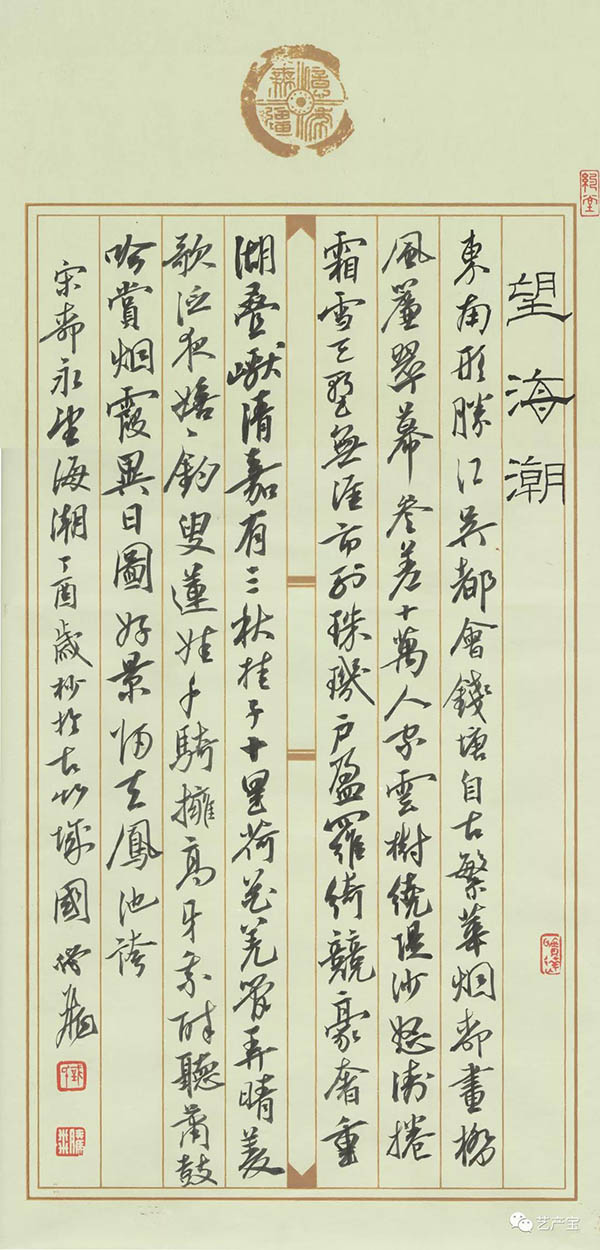 望海潮
東南形勝江吳都會錢塘自古繁華烟柳畫橋
風簾翠幕參差十萬人家雲樹繞隄沙怒濤捲
霜雪天塹無涯市列珠璣戶盈羅綺競豪奢重
湖疊巘清嘉有三秋桂子十里荷花羌管弄晴菱
歌泛夜嬉〻釣叟蓮娃千騎擁高牙乘醉聽簫鼓
吟賞烟霞異日圖好景歸去鳳池誇
宋柳永望海潮丁酉歲杪於古竹城國
艺产宝